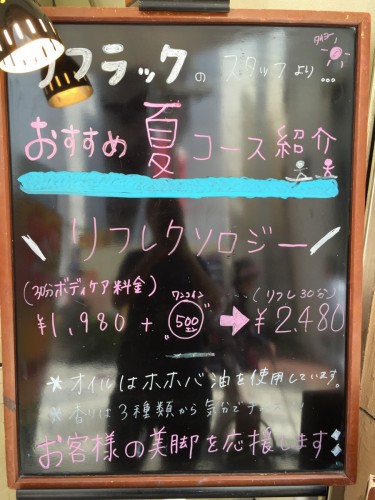 リフラックのスタッフより...
おすすめ夏コース紹介
\リフレクソロジー/
(30分ボディケア料金) ワンコイン (リフレ30分)
¥1,980 + 500 ➡ ¥2,480
* オイルはホホバ油を使用しています。
* 香りは3種類から気分で
お客様の美脚を応援します